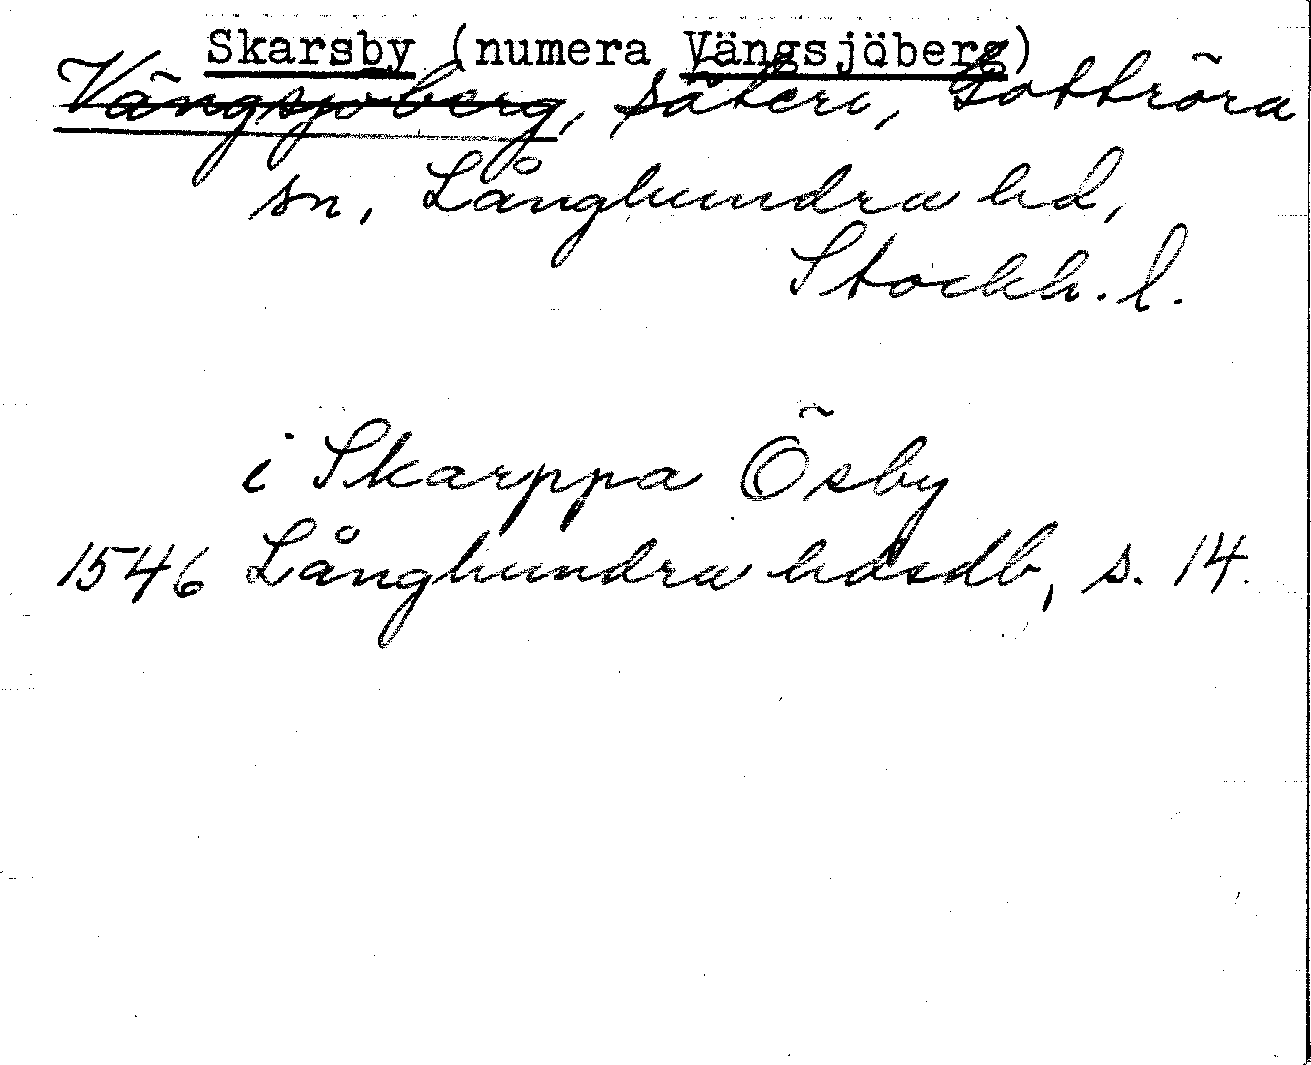 Skarsby (numera Vängsjöberg)
Vängsjöberg, säteri, Gottröra
sn, Långhundra hd,
Stockh. l.
i Skarppa Ösby
1546 Långhundra hdsdb, s. 14.